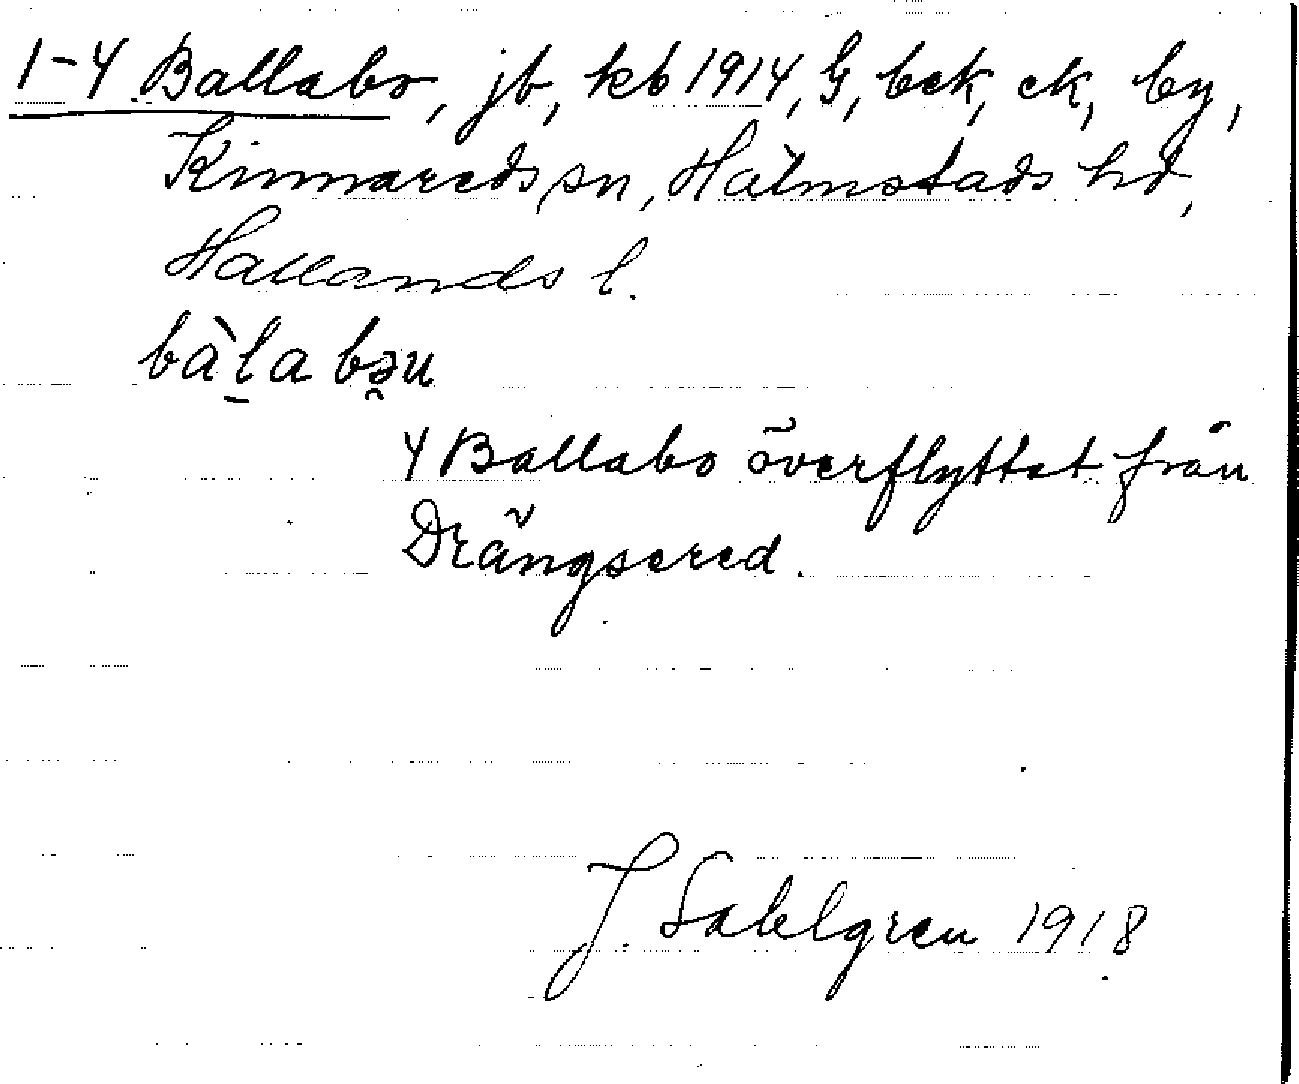 1-4 Ballabo, jb, kb 1914, G, bek, ek, by,
Kinnareds sn, Halmstads hd,
Hallands l.
bàl̠a bə̯u
4 Ballabo överflyttat från
Drängsered.
J. Sahlgren 1918